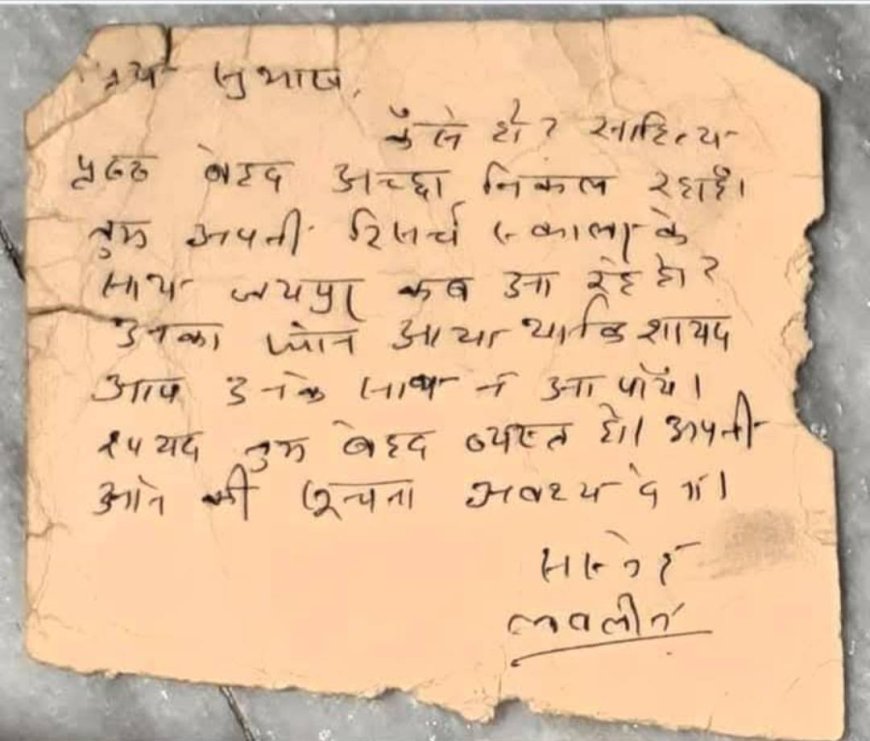 प्रिय सुभाष,
कैसे हो? साहित्य
पृष्ठ बेहद अच्छा निकल रहा है।
तुम अपनी रिसर्च स्कालर के
साथ जयपुर कब आ रहे हो?
उनका फोन आया था कि शायद
आप उनके साथ न आ पायें।
शायद तुम बेहद व्यस्त हो। अपनी
आने की सूचना अवश्य देना।
सस्नेह
लवलीन